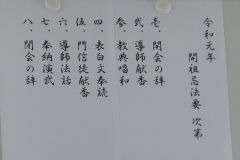 令和元年
開祖忌法要 次第
壱、開会の辞
弐、導師献香
参、教典唱和
四、表白文奉読
伍、門信徒献香
六、導師法話
七、奉納演武
八、閉会の辞